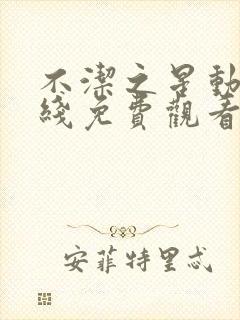 不潔之星動
綫免費觀看
安菲特里忒